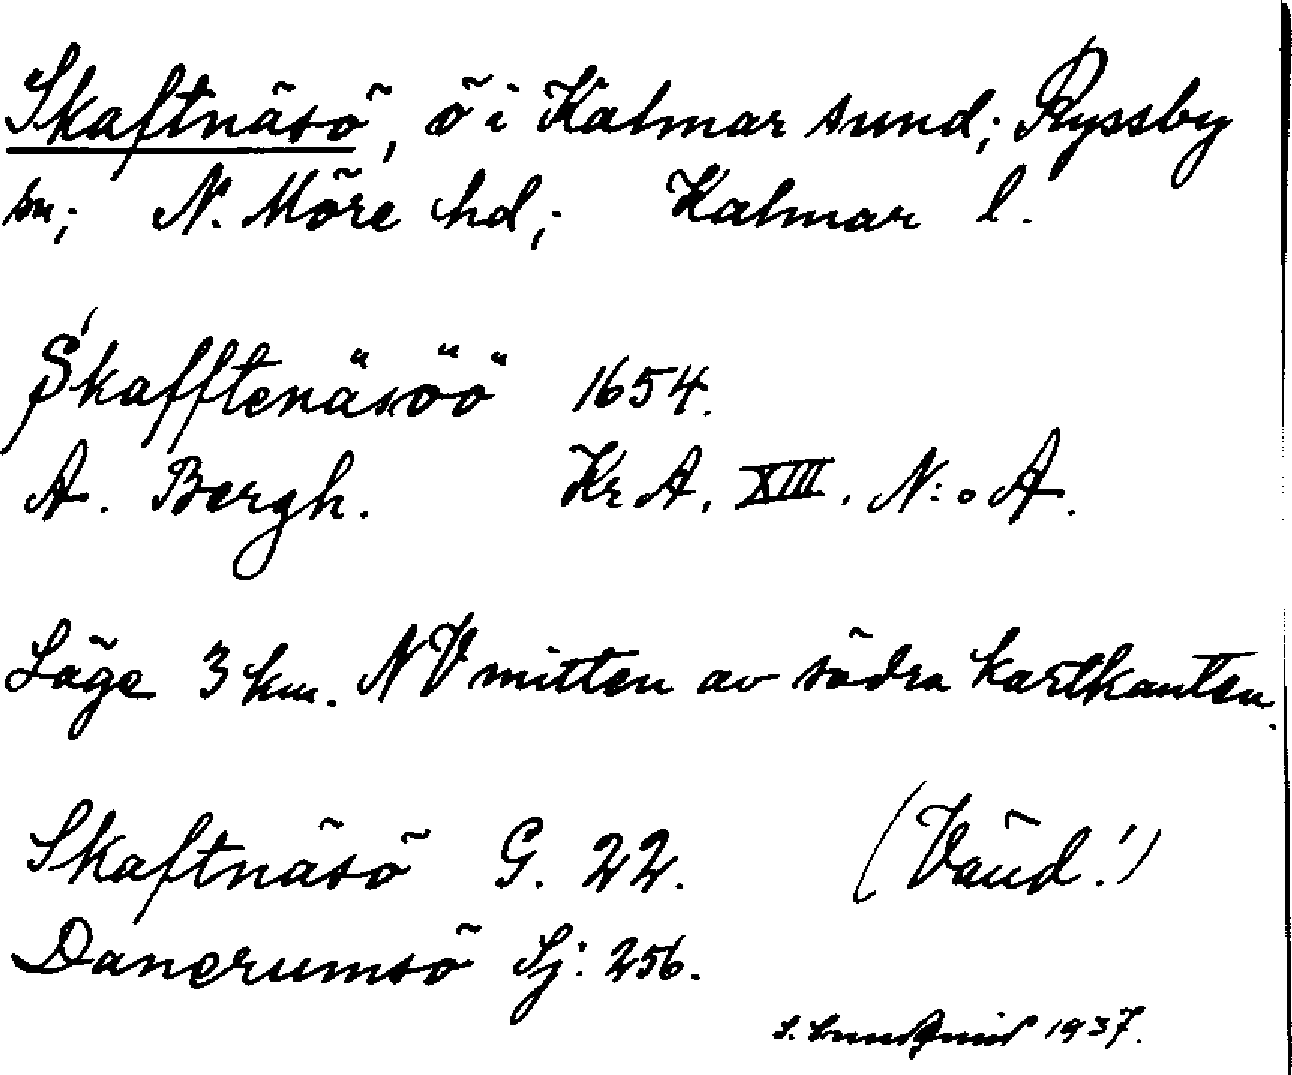 Skaftnäsö, ö i Kalmar sund; Ryssby
sn; N. Möre hd; Kalmar l.
Skafftenäsöö 1654.
A. Bergh. Kr A. XIII. N:o A.
Läge 3 km. NV mitten av södra kartkanten.
Skaftnäsö G. 22. (Vänd!)
Danerumsö Sj: 256.
S. Lundqvist 1937.